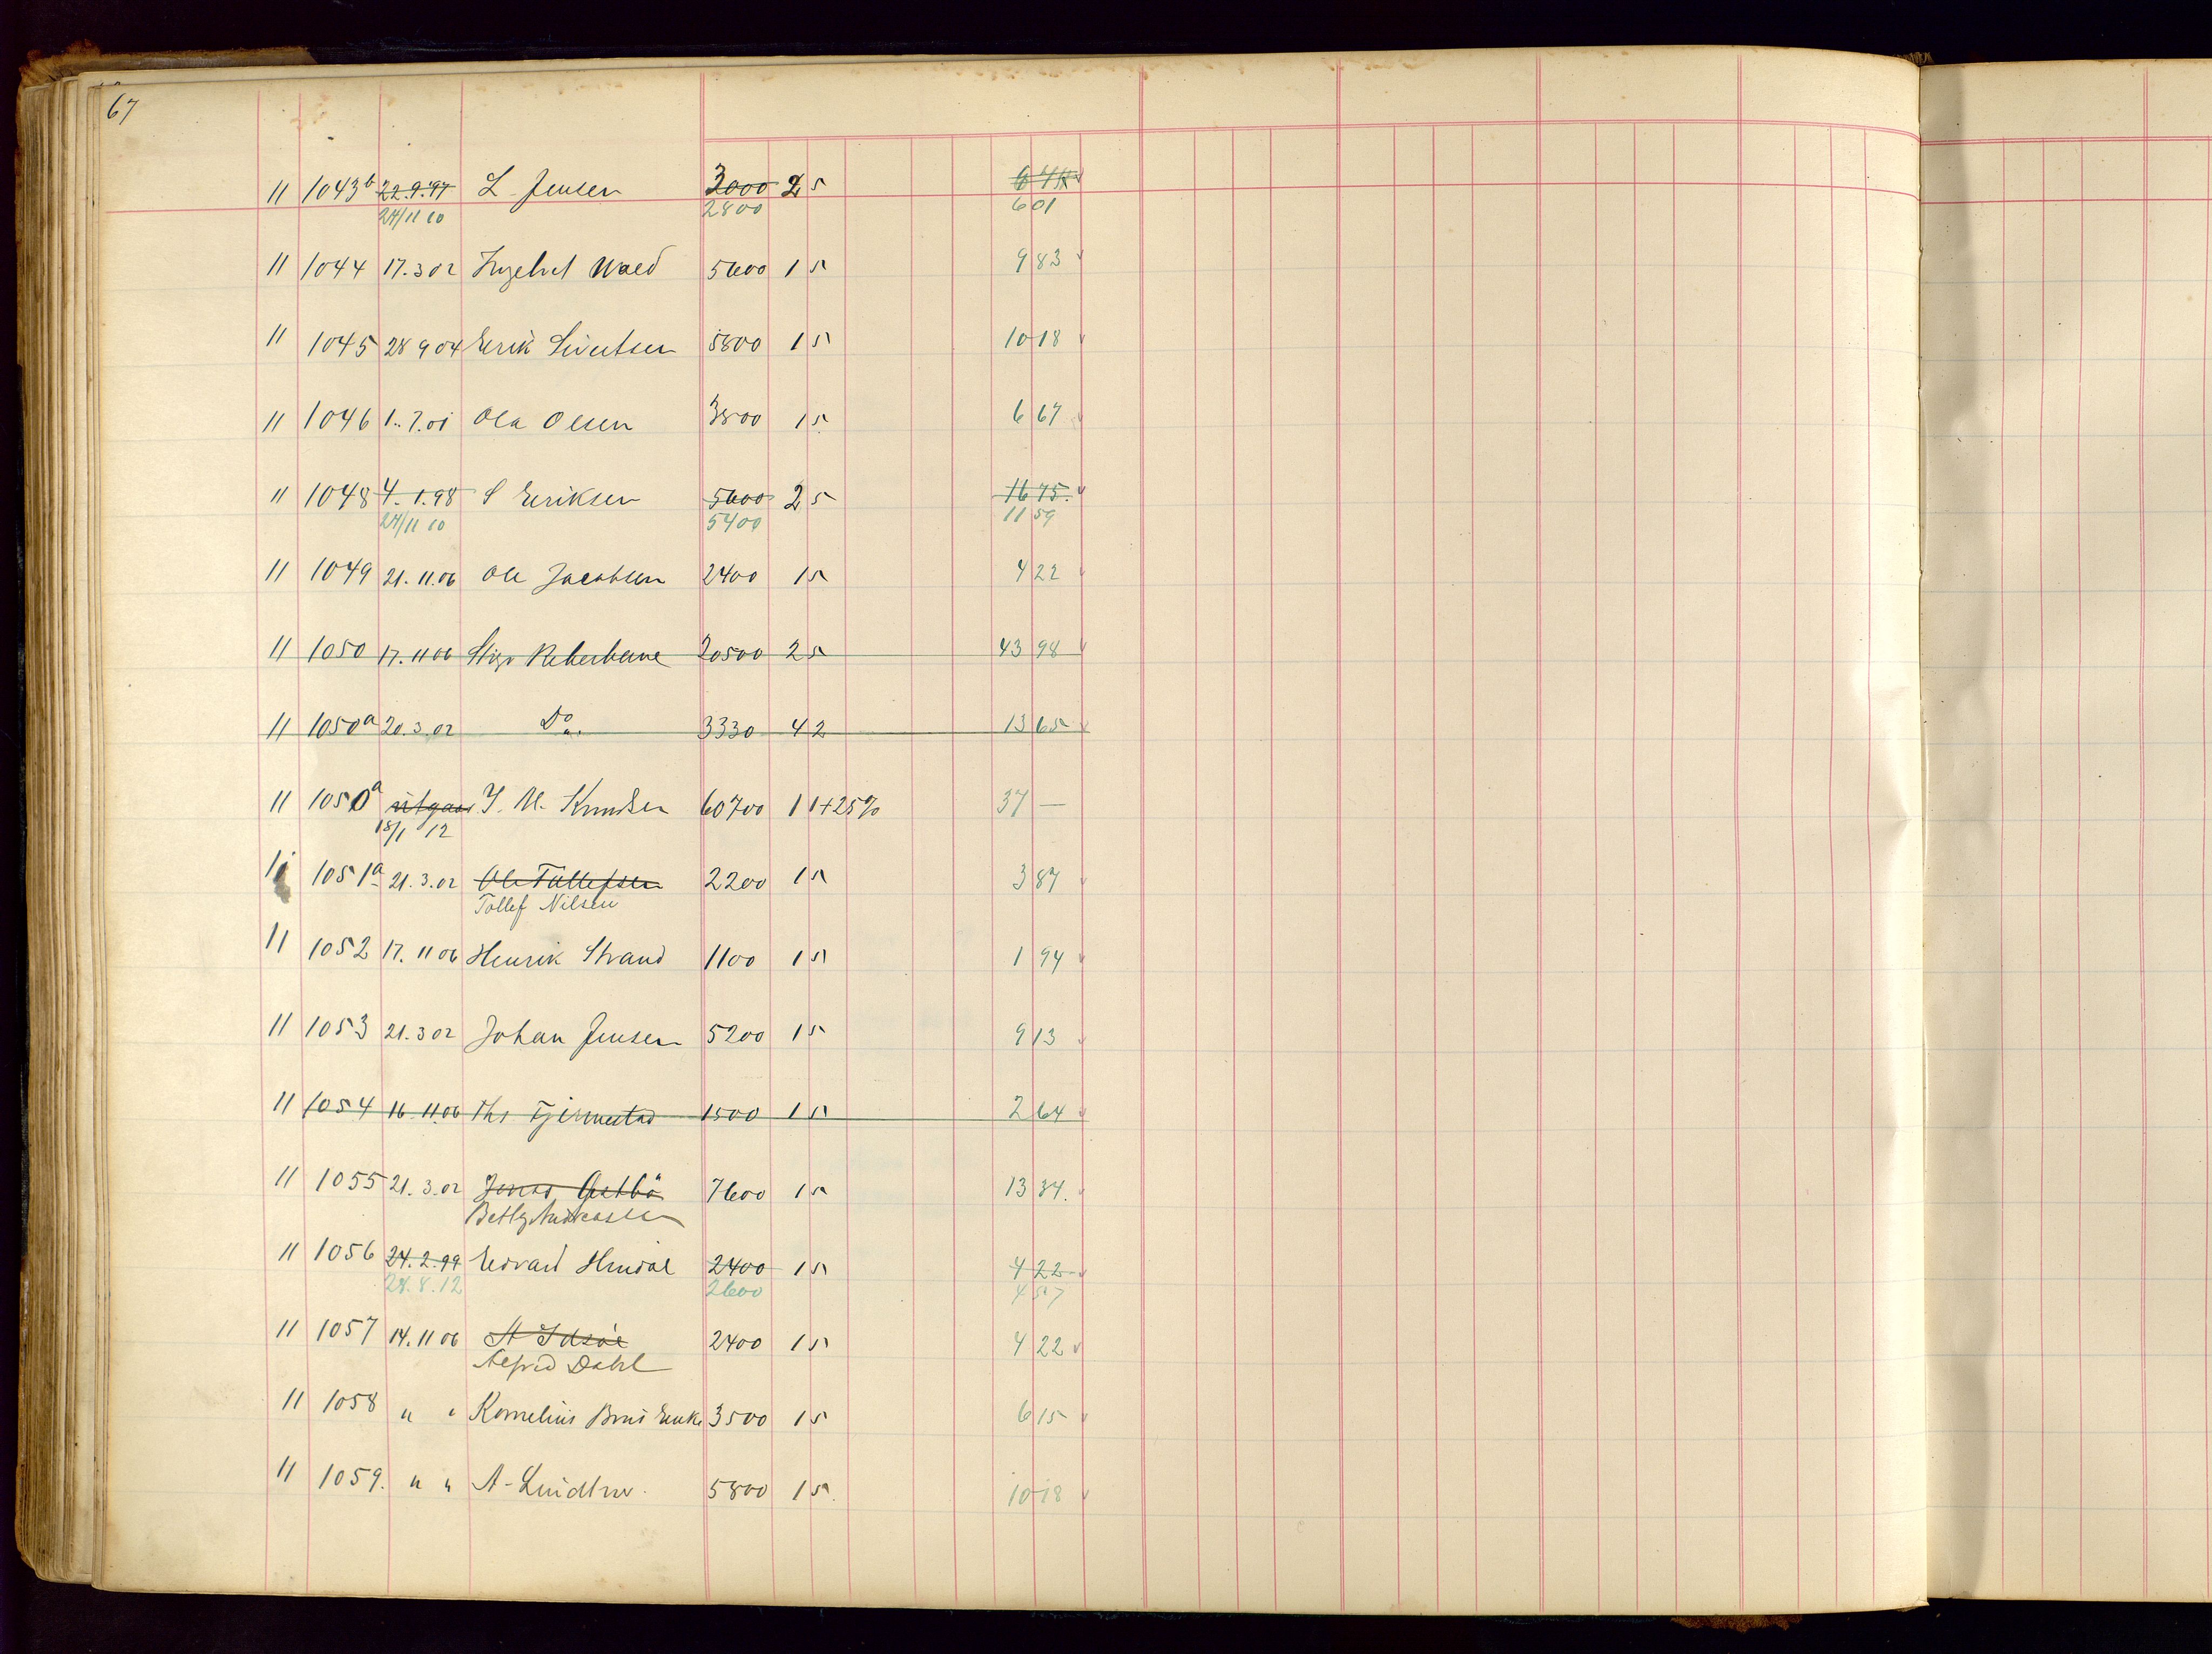 67
11 1043b 22.9.97 L Jensen 3000 2 5 6 45
24/11 10 2800 6 01
11 1044 17.3 02 Ingebret Waed 5600 1 5 9 83
11 1045 28 9 04 Erik Sivertsen 5800 1 5 10 18
11 1046 1.7.01 Ola Olsen 3800 1 5 6 67
11 1048 4.1.98 S Eriksen 5600 2 5 16 75
24/11 10 5400 11 59
11 1049 21.11.06 Ole Jacobsen 2400 1 5 4 22
11 1050 17.11 06 Reberbane 20500 2 5 43 98
11 1050a 20.3.02 Do. 3330 4 2 13 65
11 1050a utgaar J. M. Knudsen 60700 1 1+25% 37 —
18/1 12
11 1051a 21.3.02 Ole Tollefsen 2200 1 5 3 87
Tollef Nilsen
11 1052 17.11 06 Henrik Strand 1100 1 5 1 94
11 1053 21.3 02 Johan Jensen 5200 1 5 9 13
11 1054 16 11.06 Ths Tjermestad 1500 1 5 2 64
11 1055 21.3.02 Jonas 7600 1 5 13 34.
Betty Andreassen
11 1056 24.2.99 Edvard 2400 1 5 4 22
28.8.12 2600 4 57
11 1057 14.11 06 A Idsøe 2400 1 5 4 22
Alfred Dahl
11 1058 " " Kornelius Enke 3500 1 5 6 15
11 1059. " " A-Lindtner. 5800 1 5. 10 18